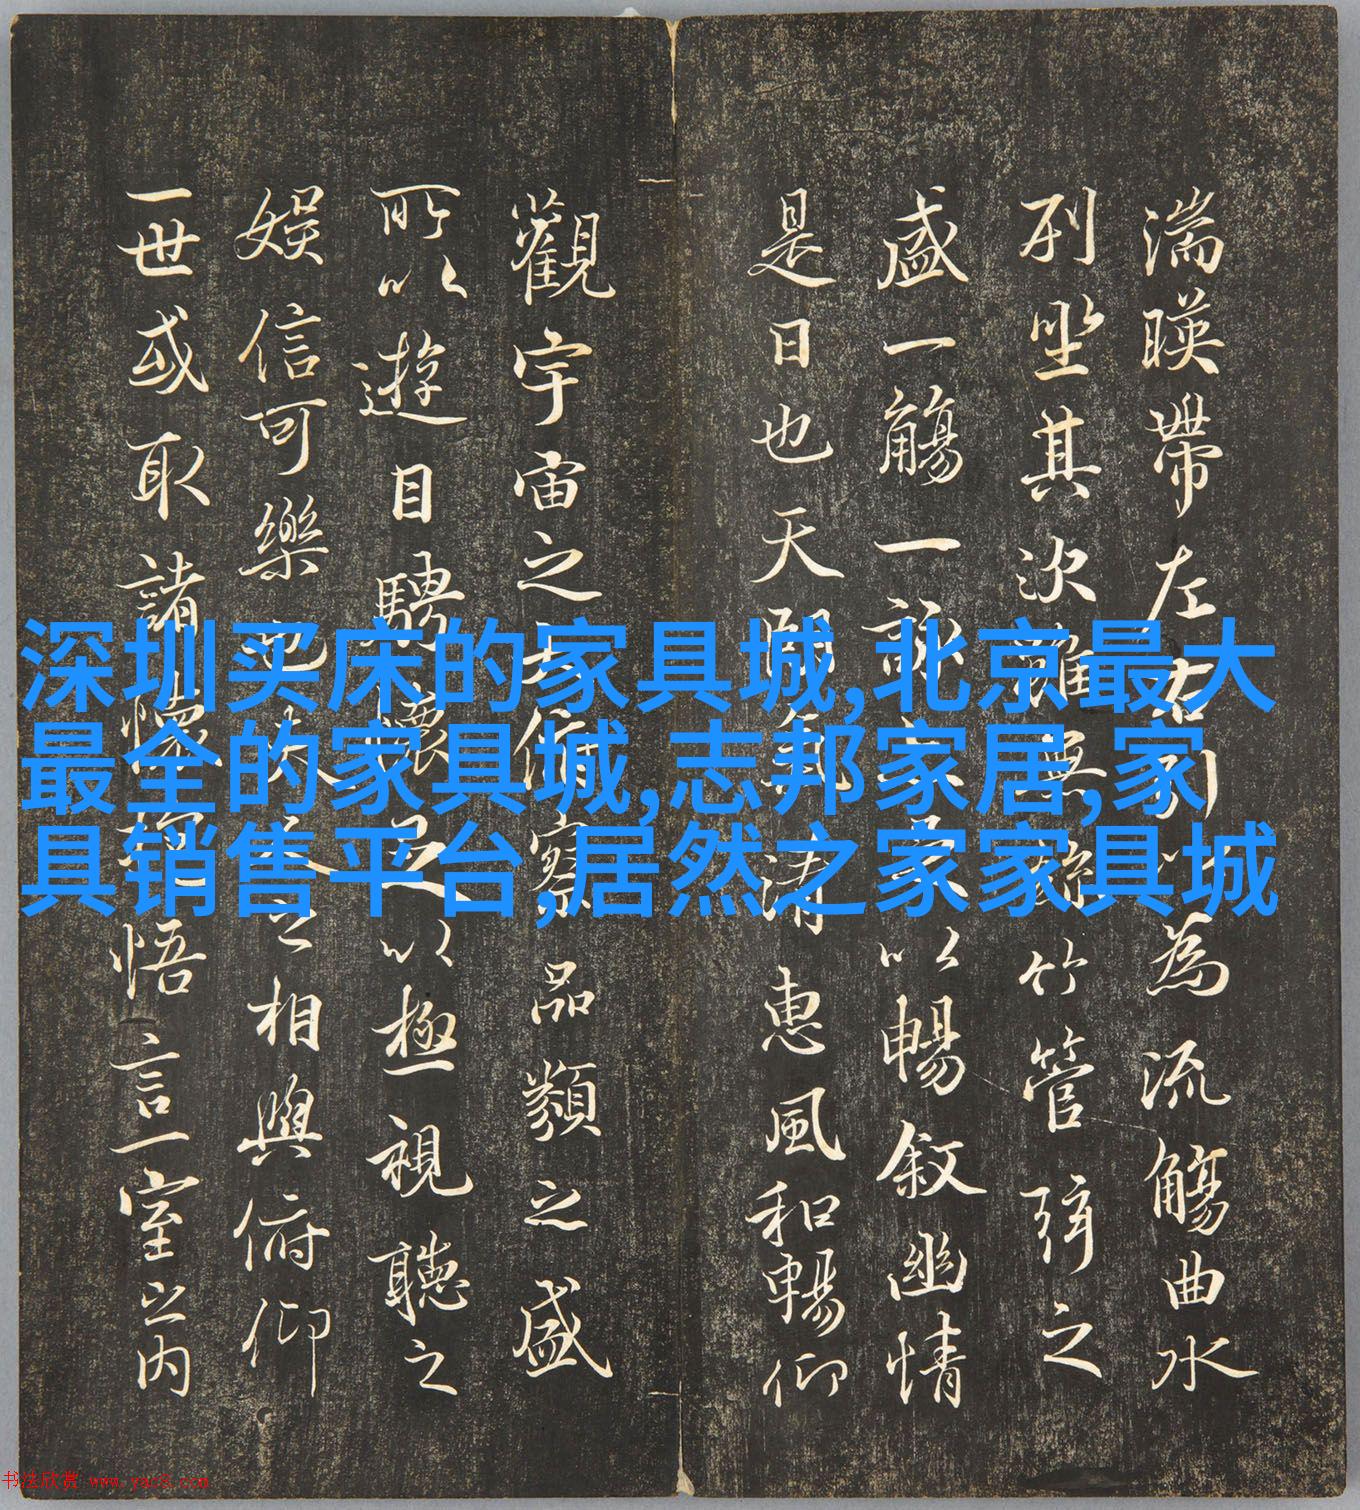 湍暎帶左右引以為流觴曲水
列坐其次雖無絲竹管弦之
盛一觴一詠亦足以暢敘幽情
是日也天朗氣清惠風和暢仰
觀宇宙之大俯察品類之盛
所以遊目騁懷足以極視聽之
娛信可樂也夫人之相與俯仰
一世或取諸懷抱悟言一室之内
深圳买床的家具城,北京最大
最全的家具城,志邦家居,家
具销售平台,居然之家家具城
书法欣赏 www.yac8.com